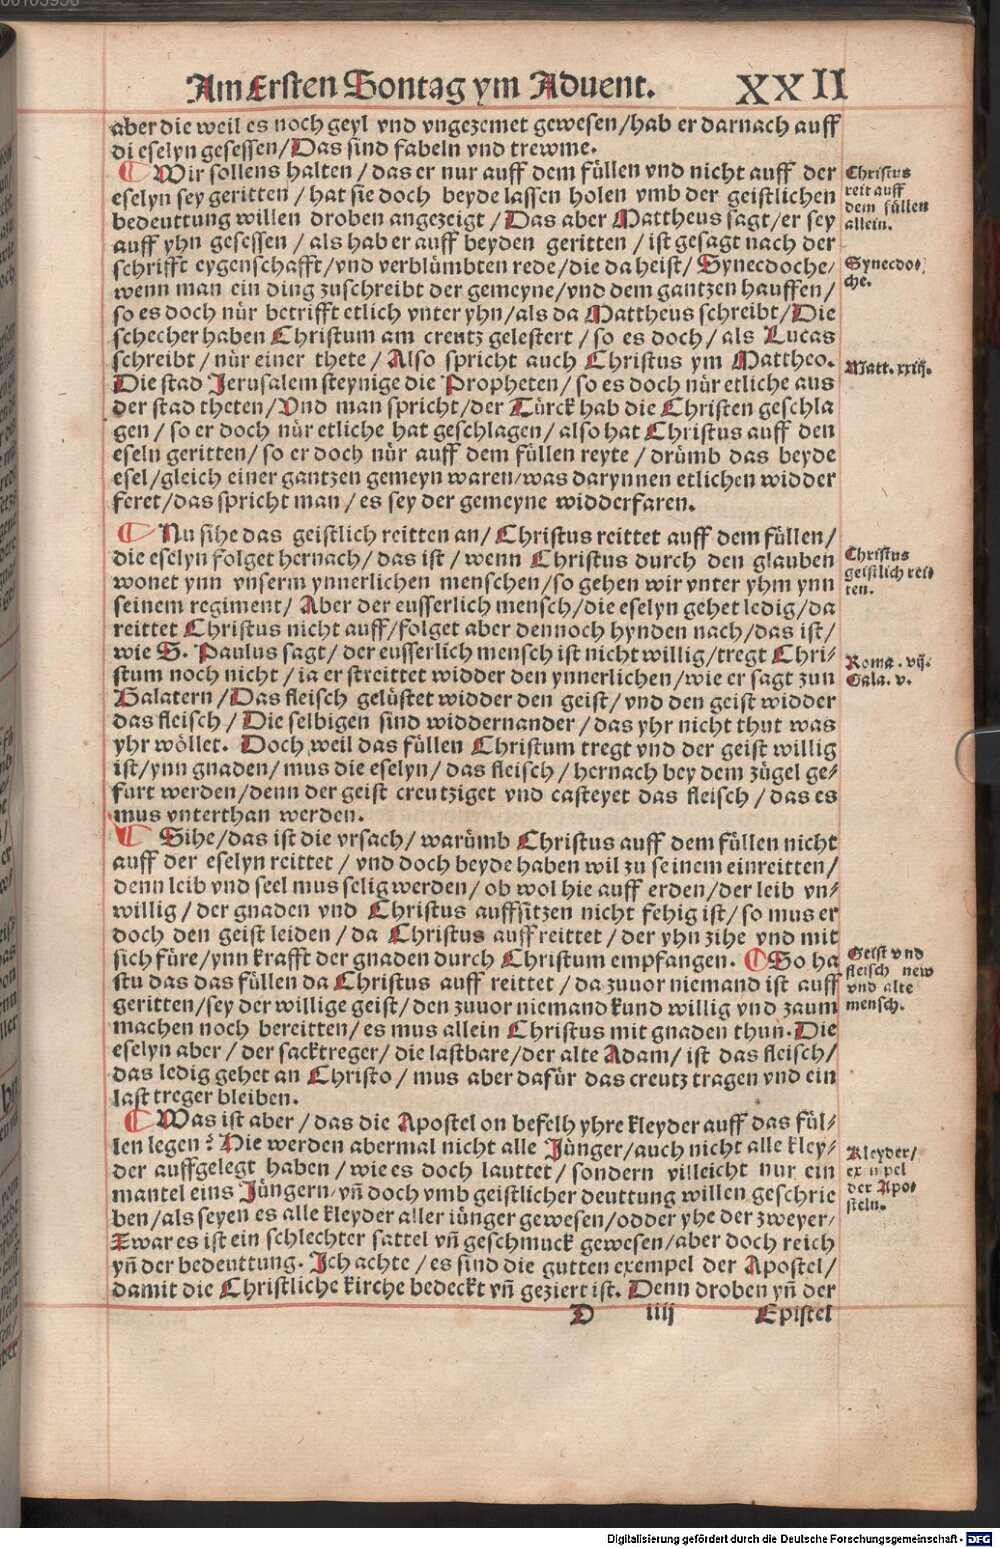 Am Ersten Sontag ym Aduent. XXII
aber die weil es noch geyl vnd vngezemet gewesen/hab er darnach auff
di eselyn gesessen/Das sind fabeln vnd trewme.
¶ Wir sollens halten/das er nur auff dem füllen vnd nicht auff der
eselyn sey geritten/hat sie doch beyde lassen holen vmb der geistlichen
bedeuttung willen droben angezeigt/Das aber Mattheus sagt/er sey
auff yhn gesessen/als hab er auff beyden geritten/ist gesagt nach der
schrifft eygenschafft/vnd verblümbten rede/die da heist/Synecdoche/
wenn man ein ding zuschreibt der gemeyne/vnd dem gantzen hauffen/
so es doch nür betrifft etlich vnter yhn/als da Mattheus schreibt/Die
schecher haben Christum am creutz gelestert/so es doch/als Lucas
schreibt/nür einer thete/Also spricht auch Christus ym Mattheo.
Die stad Jerusalem steynige die Propheten/so es doch nür etliche aus
der stad theten/Vnd man spricht/der Türck hab die Christen geschla
gen/so er doch nür etliche hat geschlagen/also hat Christus auff den
eseln geritten/so er doch nür auff dem füllen reyte/drümb das beyde
esel/gleich einer gantzen gemeyn waren/was darynnen etlichen widder
feret/das spricht man/es sey der gemeyne widderfaren.
Christus
reit auff
dem füllen
allein.
Synecdo-
che.
Matt. xxiij.
¶ Nu sihe das geistlich reitten an/Christus reittet auff dem füllen/
die eselyn folget hernach/das ist/wenn Christus durch den glauben
wonet ynn vnserm ynnerlichen menschen/so gehen wir vnter yhm ynn
seinem regiment/Aber der eusserlich mensch/die eselyn gehet ledig/da
reittet Christus nicht auff/folget aber dennoch hynden nach/das ist/
wie S. Paulus sagt/der eusserlich mensch ist nicht willig/tregt Chri-
stum noch nicht/ia er streittet widder den ynnerlichen/wie er sagt zun
Galatern/Das fleisch gelüstet widder den geist/vnd den geist widder
das fleisch/Die selbigen sind widdernander/das yhr nicht thut was
yhr wöllet. Doch weil das füllen Christum tregt vnd der geist willig
ist/ynn gnaden/mus die eselyn/das fleisch/hernach bey dem zügel ge-
furt werden/denn der geist creutziget vnd casteyet das fleisch/das es
mus vnterthan werden.
Christus
geistlich rei-
ten.
Roma. vij.
Gala. v.
¶ Sihe/das ist die vrsach/warümb Christus auff dem füllen nicht
auff der eselyn reittet/vnd doch beyde haben wil zu seinem einreitten/
denn leib vnd seel mus selig werden/ob wol hie auff erden/der leib vn-
willig/der gnaden vnd Christus auffsitzen nicht fehig ist/so mus er
doch den geist leiden/da Christus auff reittet/der yhn zihe vnd mit
sich füre/ynn krafft der gnaden durch Christum empfangen. ¶ So ha
stu das das füllen da Christus auff reittet/da zuuor niemand ist auff
geritten/sey der willige geist/den zuuor niemand kund willig vnd zaum
machen noch bereitten/es mus allein Christus mit gnaden thun. Die
eselyn aber/der sacktreger/die lastbare/der alte Adam/ist das fleisch/
das ledig gehet an Christo/mus aber dafür das creutz tragen vnd ein
last treger bleiben.
Geist vnd
fleisch new
vnd alte
mensch.
¶ Was ist aber/das die Apostel on befelh yhre kleyder auff das fül-
len legen? Hie werden abermal nicht alle Jünger/auch nicht alle kley-
der auffgelegt haben/wie es doch lauttet/sondern villeicht nur ein
mantel eins Jüngern/vñ doch vmb geistlicher deuttung willen geschrie
ben/als seyen es alle kleyder aller iünger gewesen/odder yhe der zweyer/
Zwar es ist ein schlechter sattel vñ geschmuck gewesen/aber doch reich
yñ der bedeuttung. Ich achte/es sind die gutten exempel der Apostel/
damit die Christliche kirche bedeckt vñ geziert ist. Denn droben yñ der
Kleyder/
exempel
der Apo-
steln.
D iiij Epistel
Digitalisierung gefördert durch die Deutsche Forschungsgemeinschaft - DFG